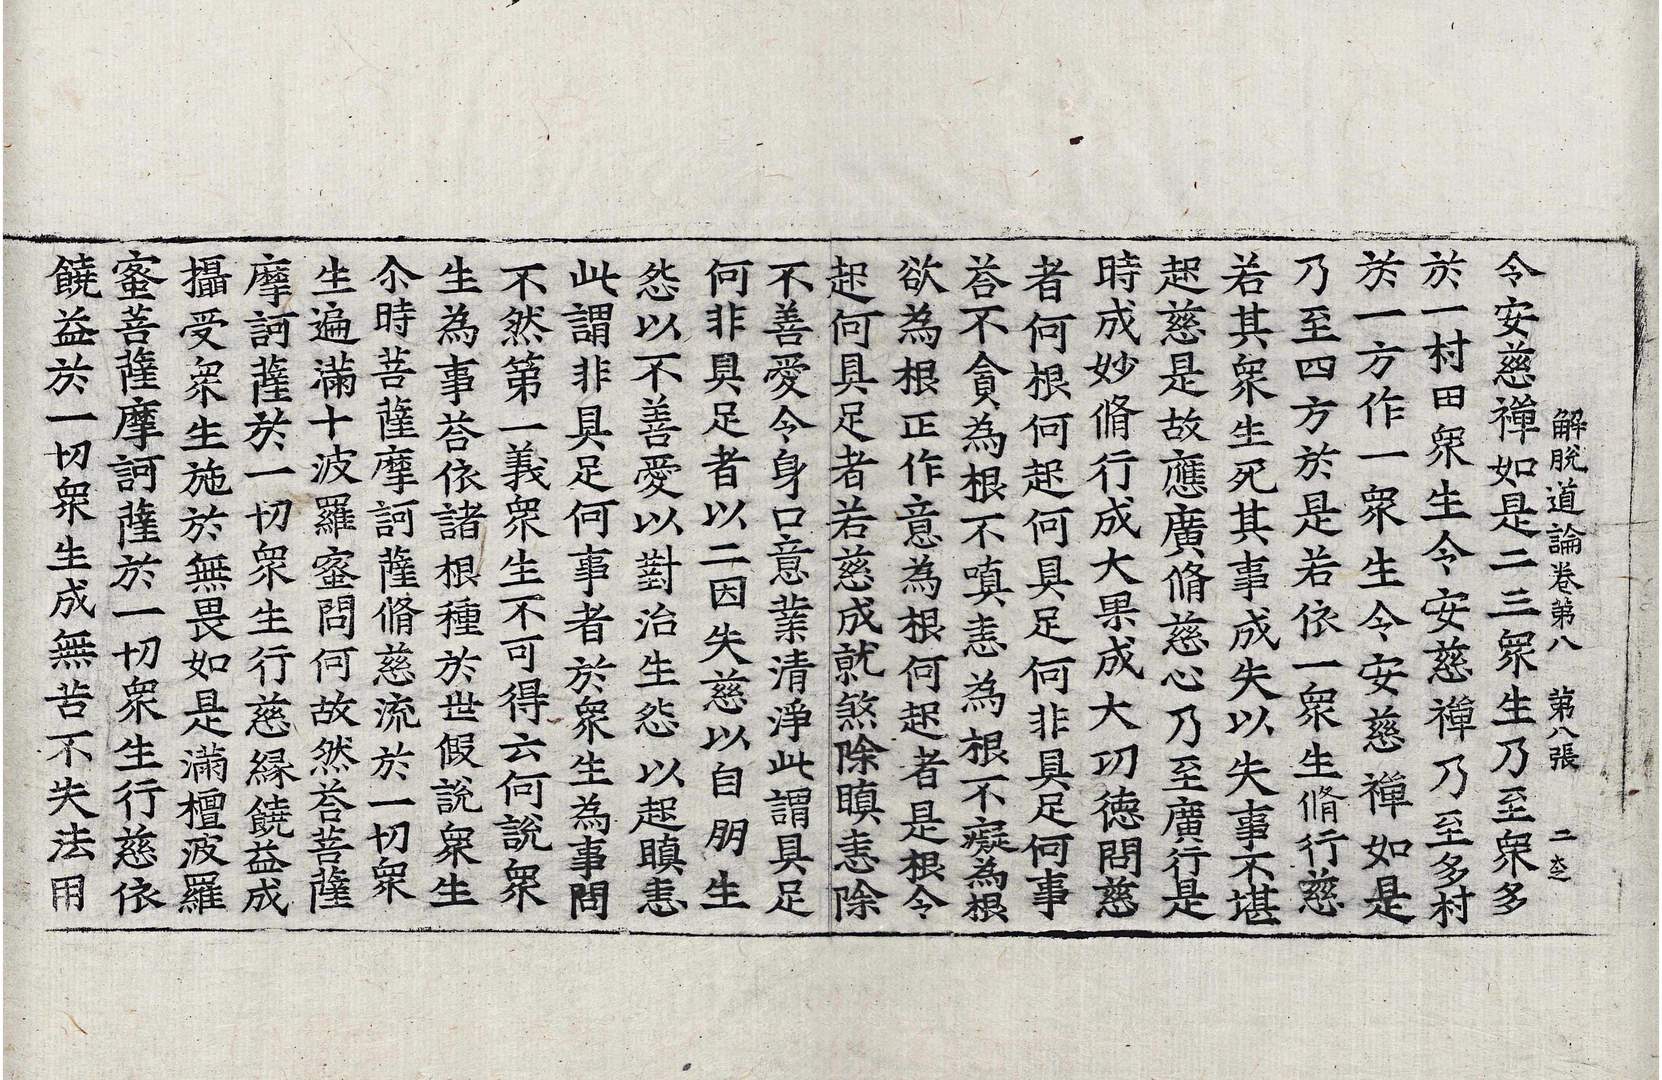 解脫道論卷第八　第八張　二
令安慈禪如是二三衆生乃至衆多
於一村田衆生令安慈禪乃至多村
於一方作一衆生令安慈禪如是
乃至四方於是若依一衆生脩行慈
若其衆生死其事成失以失事不堪
起慈是故應廣脩慈心乃至廣行是
時成妙脩行成大果成大功德問慈
者何根何起何具足何非具足何事
荅不貪為根不嗔恚為根不癡為根
欲為根正作意為根何起者是根令
起何具足者若慈成就煞除瞋恚除
不善愛令身口意業清淨此謂具足
何非具足者以二因失慈以自朋生
惄以不善愛以對治生惄以起瞋恚
此謂非具足何事者於衆生為事問
不然第一義衆生不可得云何說衆
生為事荅依諸根種於世假說衆生
尒時菩薩摩訶薩脩慈流於一切衆
生遍滿十波羅蜜問何故然荅菩薩
摩訶薩於一切衆生行慈緣饒益成
攝受衆生施於無畏如是滿檀波羅
蜜菩薩摩訶薩於一切衆生行慈依
饒益於一切衆生成無苦不失法用